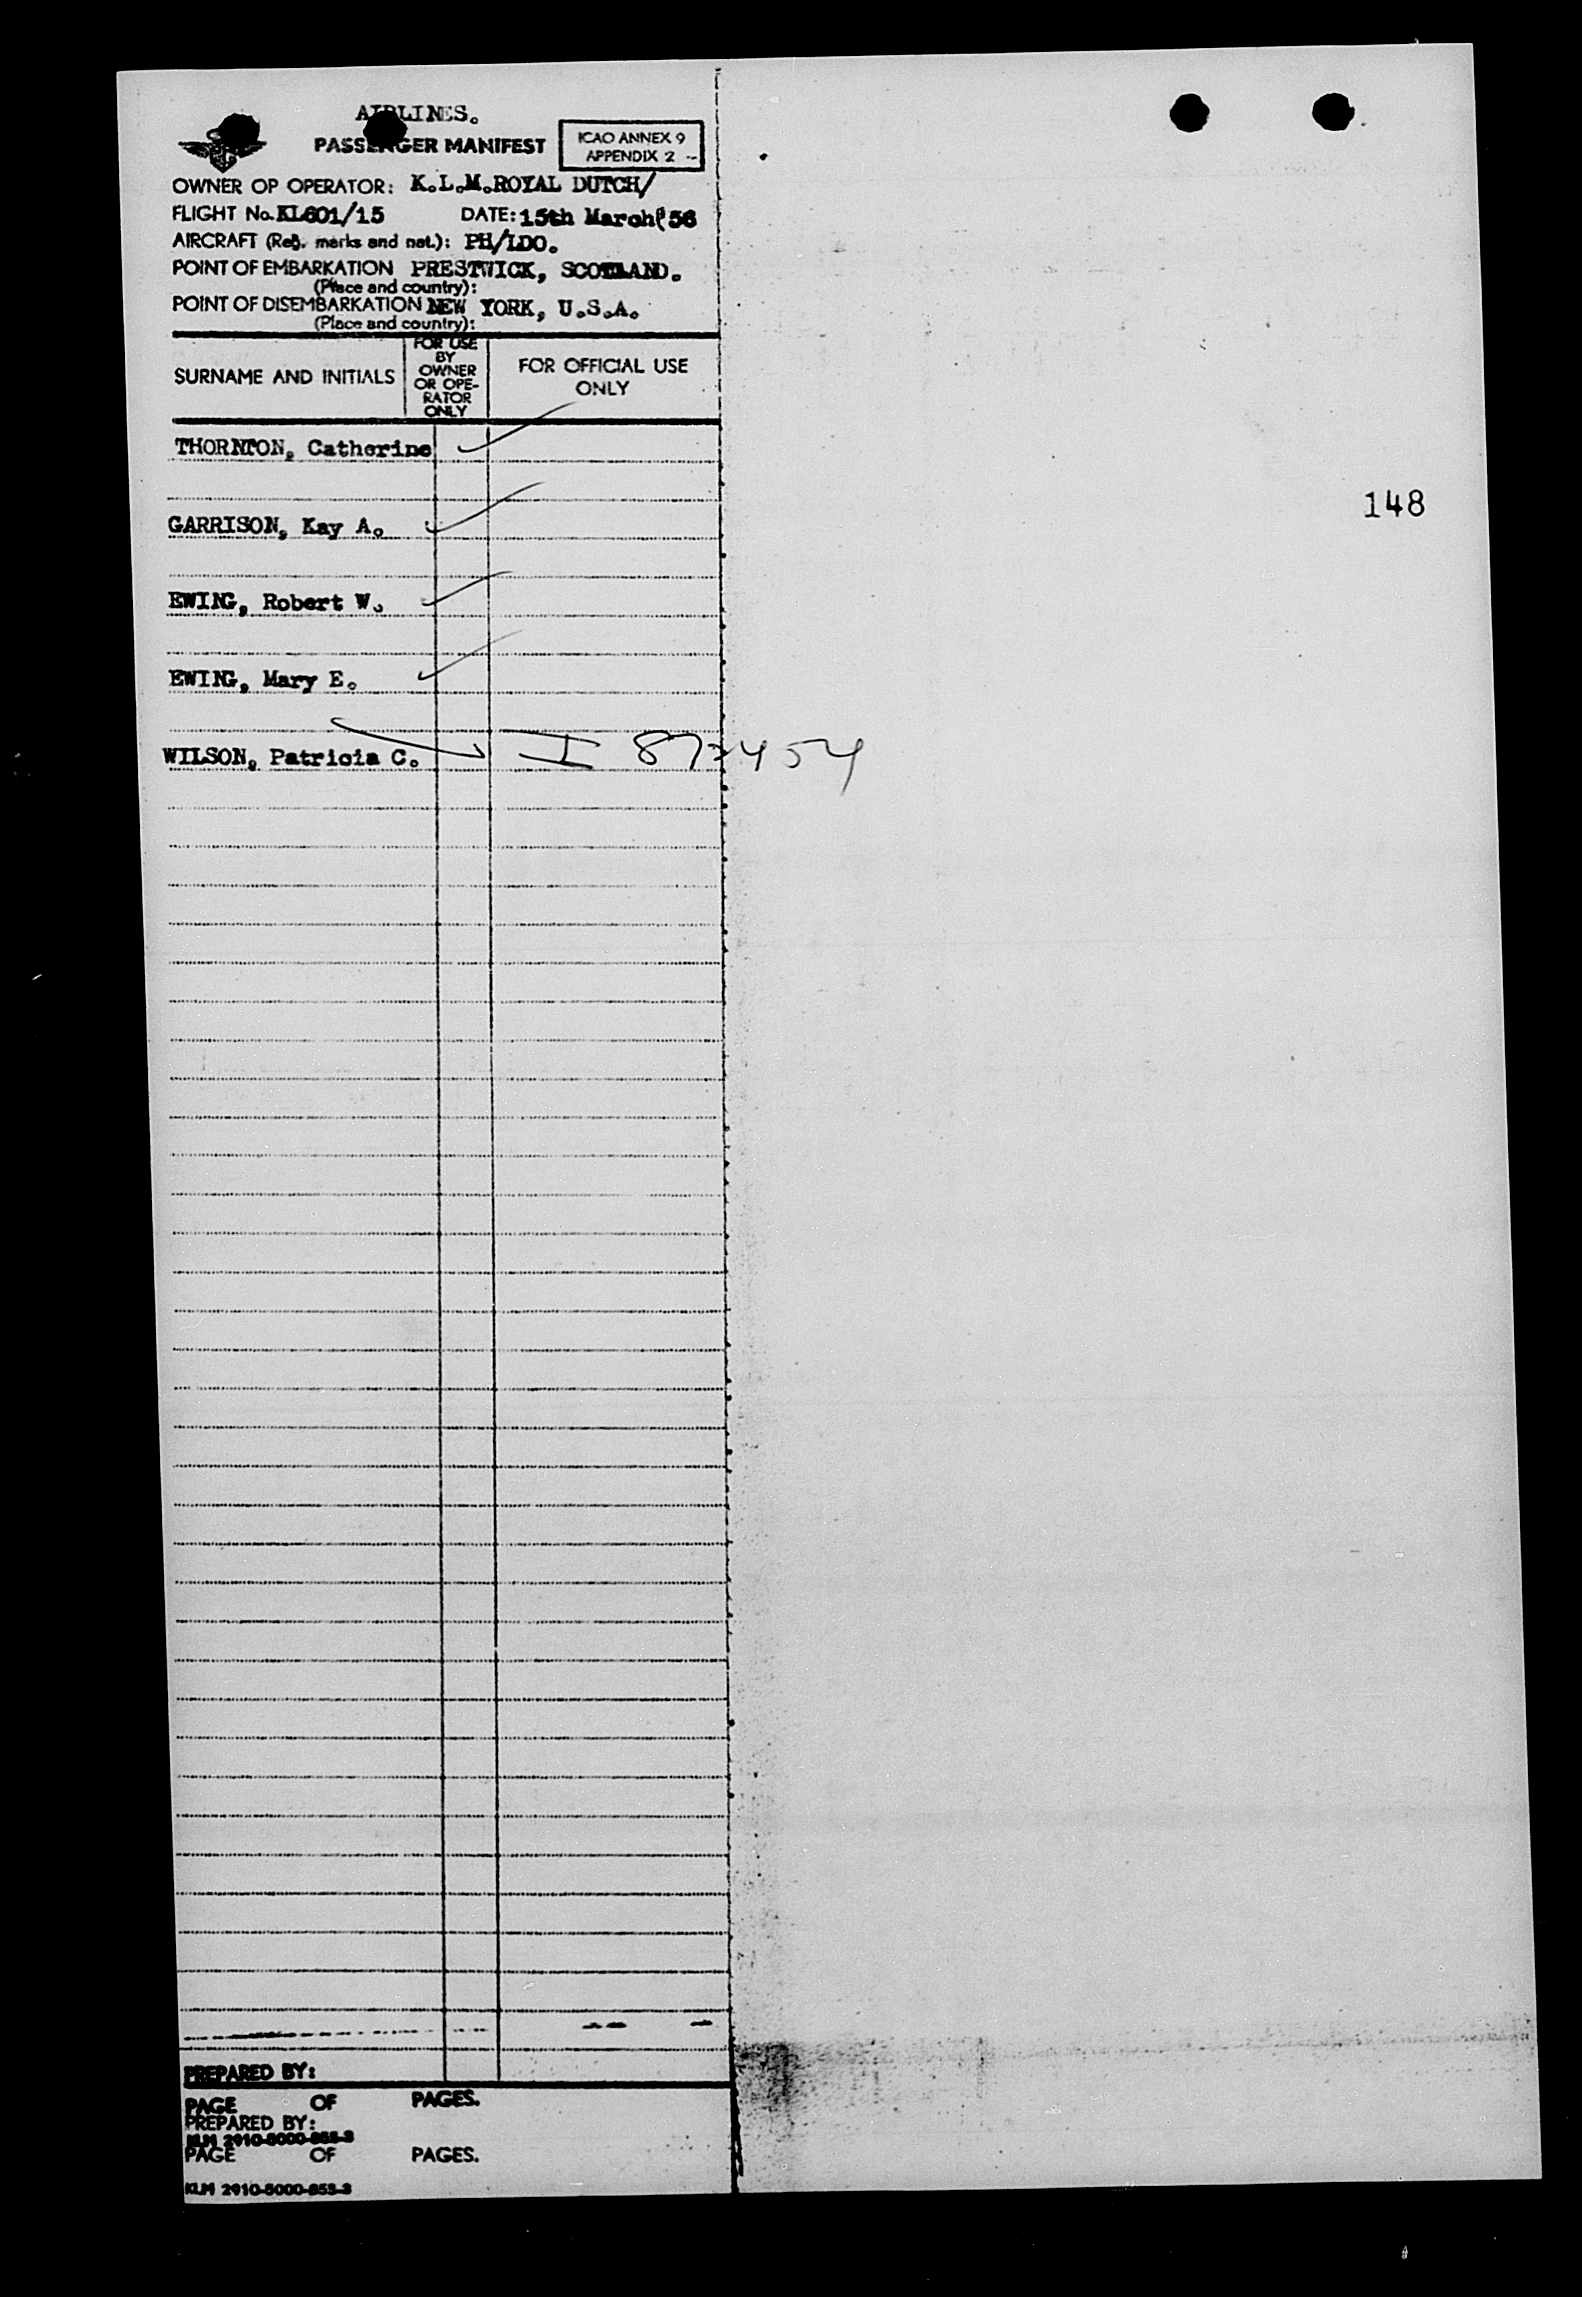 AIRLINES.
PASSENGER MANIFEST
ICAO ANNEX 9
APPENDIX 2
OWNER OP OPERATOR: K.L.M.ROYAL DUTCH/
FLIGHT No. KL601/15 DATE: 15th March '56
AIRCRAFT (Reg. marks and nat.): PH/LDO.
POINT OF EMBARKATION PRESTWICK, SCOTLAND.
(Place and country):
POINT OF DISEMBARKATION NEW YORK, U.S.A.
(Place and country):
SURNAME AND INITIALS
FOR USE
BY
OWNER
OR OPE-
RATOR
ONLY
FOR OFFICIAL USE
ONLY
THORNTON, Catherine
GARRISON, Kay A.
148
EWING, Robert W.
EWING, Mary E.
WILSON, Patricia C. I 872454
PREPARED BY:
PAGE OF PAGES.
PREPARED BY:
KLM 2910-5000-853-3
PAGE OF PAGES.
KLM 2910-5000-853-3